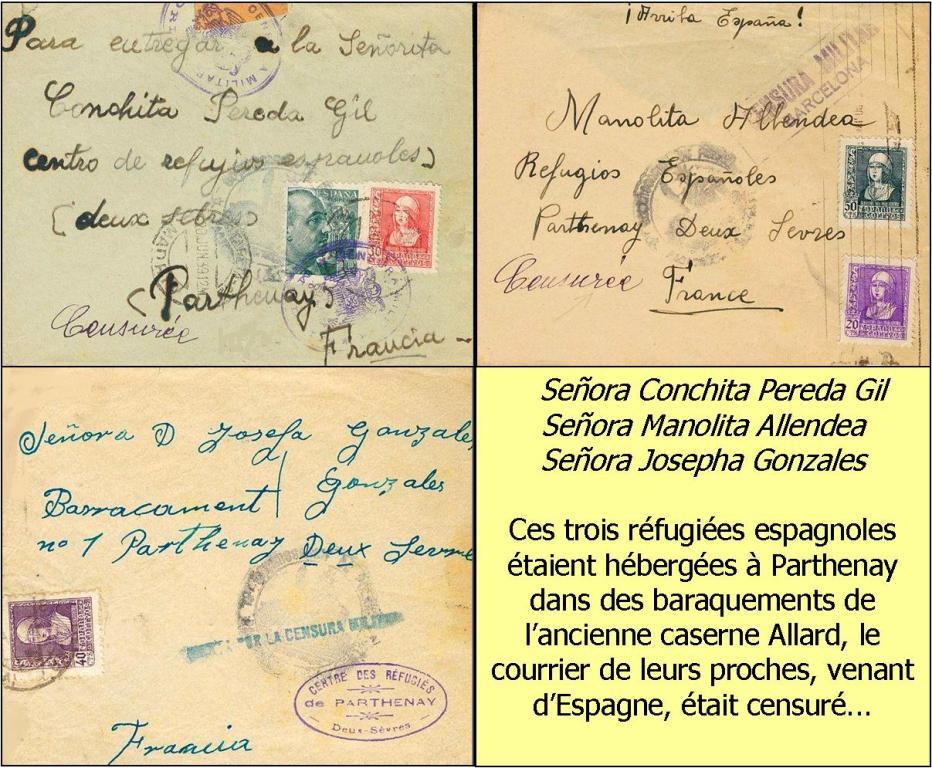 Para entregar a la Señorita
Conchita Pereda Gil
centro de refugios españoles)
(deux sebres
(Parthenay)
Censurée
Francia
MILITAR
ESPAÑA
30
¡Arriba España!
CENSURA MILITAR
BARCELONA
Manolita Allendea
Refugios Españoles
Parthenay Deux Sevres
Censurée France
50
ESPAÑA
CORREOS
20
ESPAÑA
CORREOS
Señora D Josefa Gonzales
Gonzales
Barracament
nº 1 Parthenay Deux Sevre
40
ESPAÑA
CORREOS
LA CENSURA MILITAR
CENTRE DES RÉFUGIÉS
de PARTHENAY
Deux-Sèvres
Francia
Señora Conchita Pereda Gil
Señora Manolita Allendea
Señora Josepha Gonzales
Ces trois réfugiées espagnoles
étaient hébergées à Parthenay
dans des baraquements de
l'ancienne caserne Allard, le
courrier de leurs proches, venant
d'Espagne, était censuré...